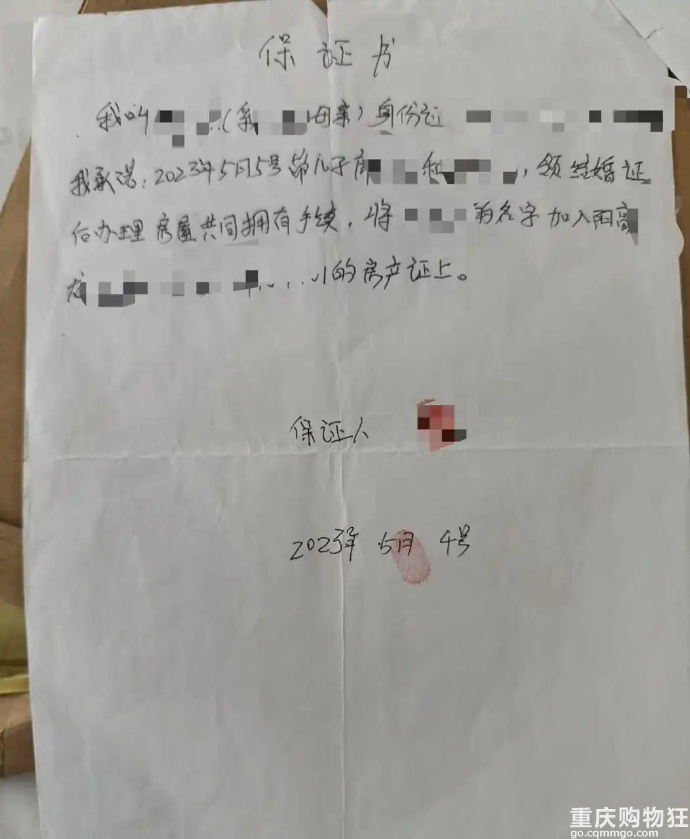 保证书
我叫 (系 母亲)身份证
我承诺:2023年5月5号 儿子 和 ,领结婚证
后办理房屋共同拥有手续,将 名字加入
的房产证上。
保证人
2023年 5月 4号
重庆购物狂
go.cqmmgo.com